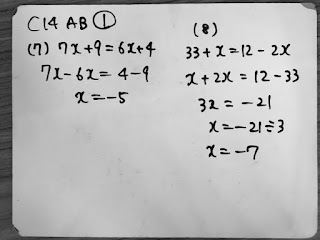 C14 AB ①
(7) 7x+9=6x+4
7x-6x=4-9
x=-5
(8)
33+x=12-2x
x+2x=12-33
3x=-21
x=-21÷3
x=-7